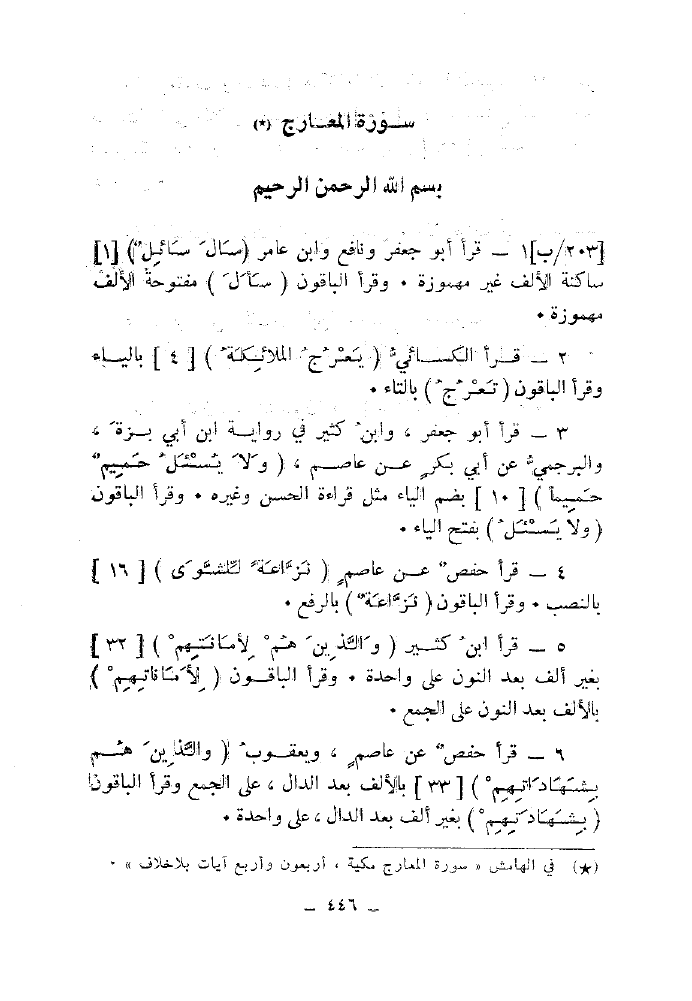 سورة المعارج (★)
بسم الله الرحمن الرحيم
[٢٠٣/ب] ١ – قرأ أبو جعفر ونافع وابن عامر (سَالَ سَائِلٌ) [١]
ساكنة الألف غير مهموزة ٠ وقرأ الباقون (سَأَلَ) مفتوحة الألف
مهموزة ٠
٢ – قرأ الكسائيُّ (يَعْرُجُ الملائِكَةُ) [٤] بالياء
وقرأ الباقون (تَعْرُجُ) بالتاء ٠
٣ – قرأ أبو جعفر ، وابنُ كثير في رواية ابن أبي بزةَ ،
والبرجميُّ عن أبي بكرٍ عن عاصم ، (وَلاَ يُسْئَلُ حَمِيمٌ
حَمِيماً) [١٠] بضم الياء مثل قراءة الحسن وغيره ٠ وقرأ الباقون
(ولا يَسْئَلُ) بفتح الياء ٠
٤ – قرأ حفصٌ عن عاصمٍ (نَزَّاعَةً لِلشَّوَى) [١٦]
بالنصب ٠ وقرأ الباقون (نَزَّاعَةٌ) بالرفع ٠
٥ – قرأ ابنُ كثير (وَالَّذِينَ هُمْ لِأَمَانَتِهِمْ) [٣٢]
بغير ألف بعد النون على واحدة ٠ وقرأ الباقون (لِأَمَانَاتِهِمْ)
بالألف بعد النون على الجمع ٠
٦ – قرأ حفصٌ عن عاصمٍ ، ويعقوبُ (والَّذِينَ هُم
بِشَهَادَاتِهِمْ) [٣٣] بالألف بعد الدال ، على الجمع وقرأ الباقون
(بِشَهَادَتِهِمْ) بغير ألف بعد الدال ، على واحدة ٠
(★) في الهامش « سورة المعارج مكية ، أربعون وأربع آيات بلاخلاف » ٠
– ٤٤٦ –